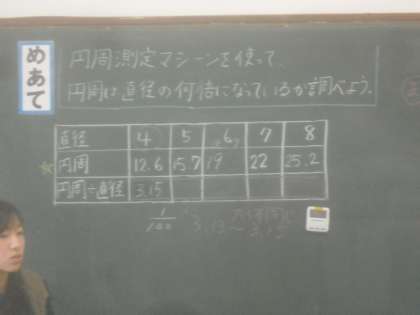 めあて
円周測定マシーンを使って、
円周は直径の何倍になっているか調べよう。
直径 4 5 6 7 8
円周 12.6 15.7 19 22 25.2
円周÷直径 3.15
1/100
3.13〜3.15